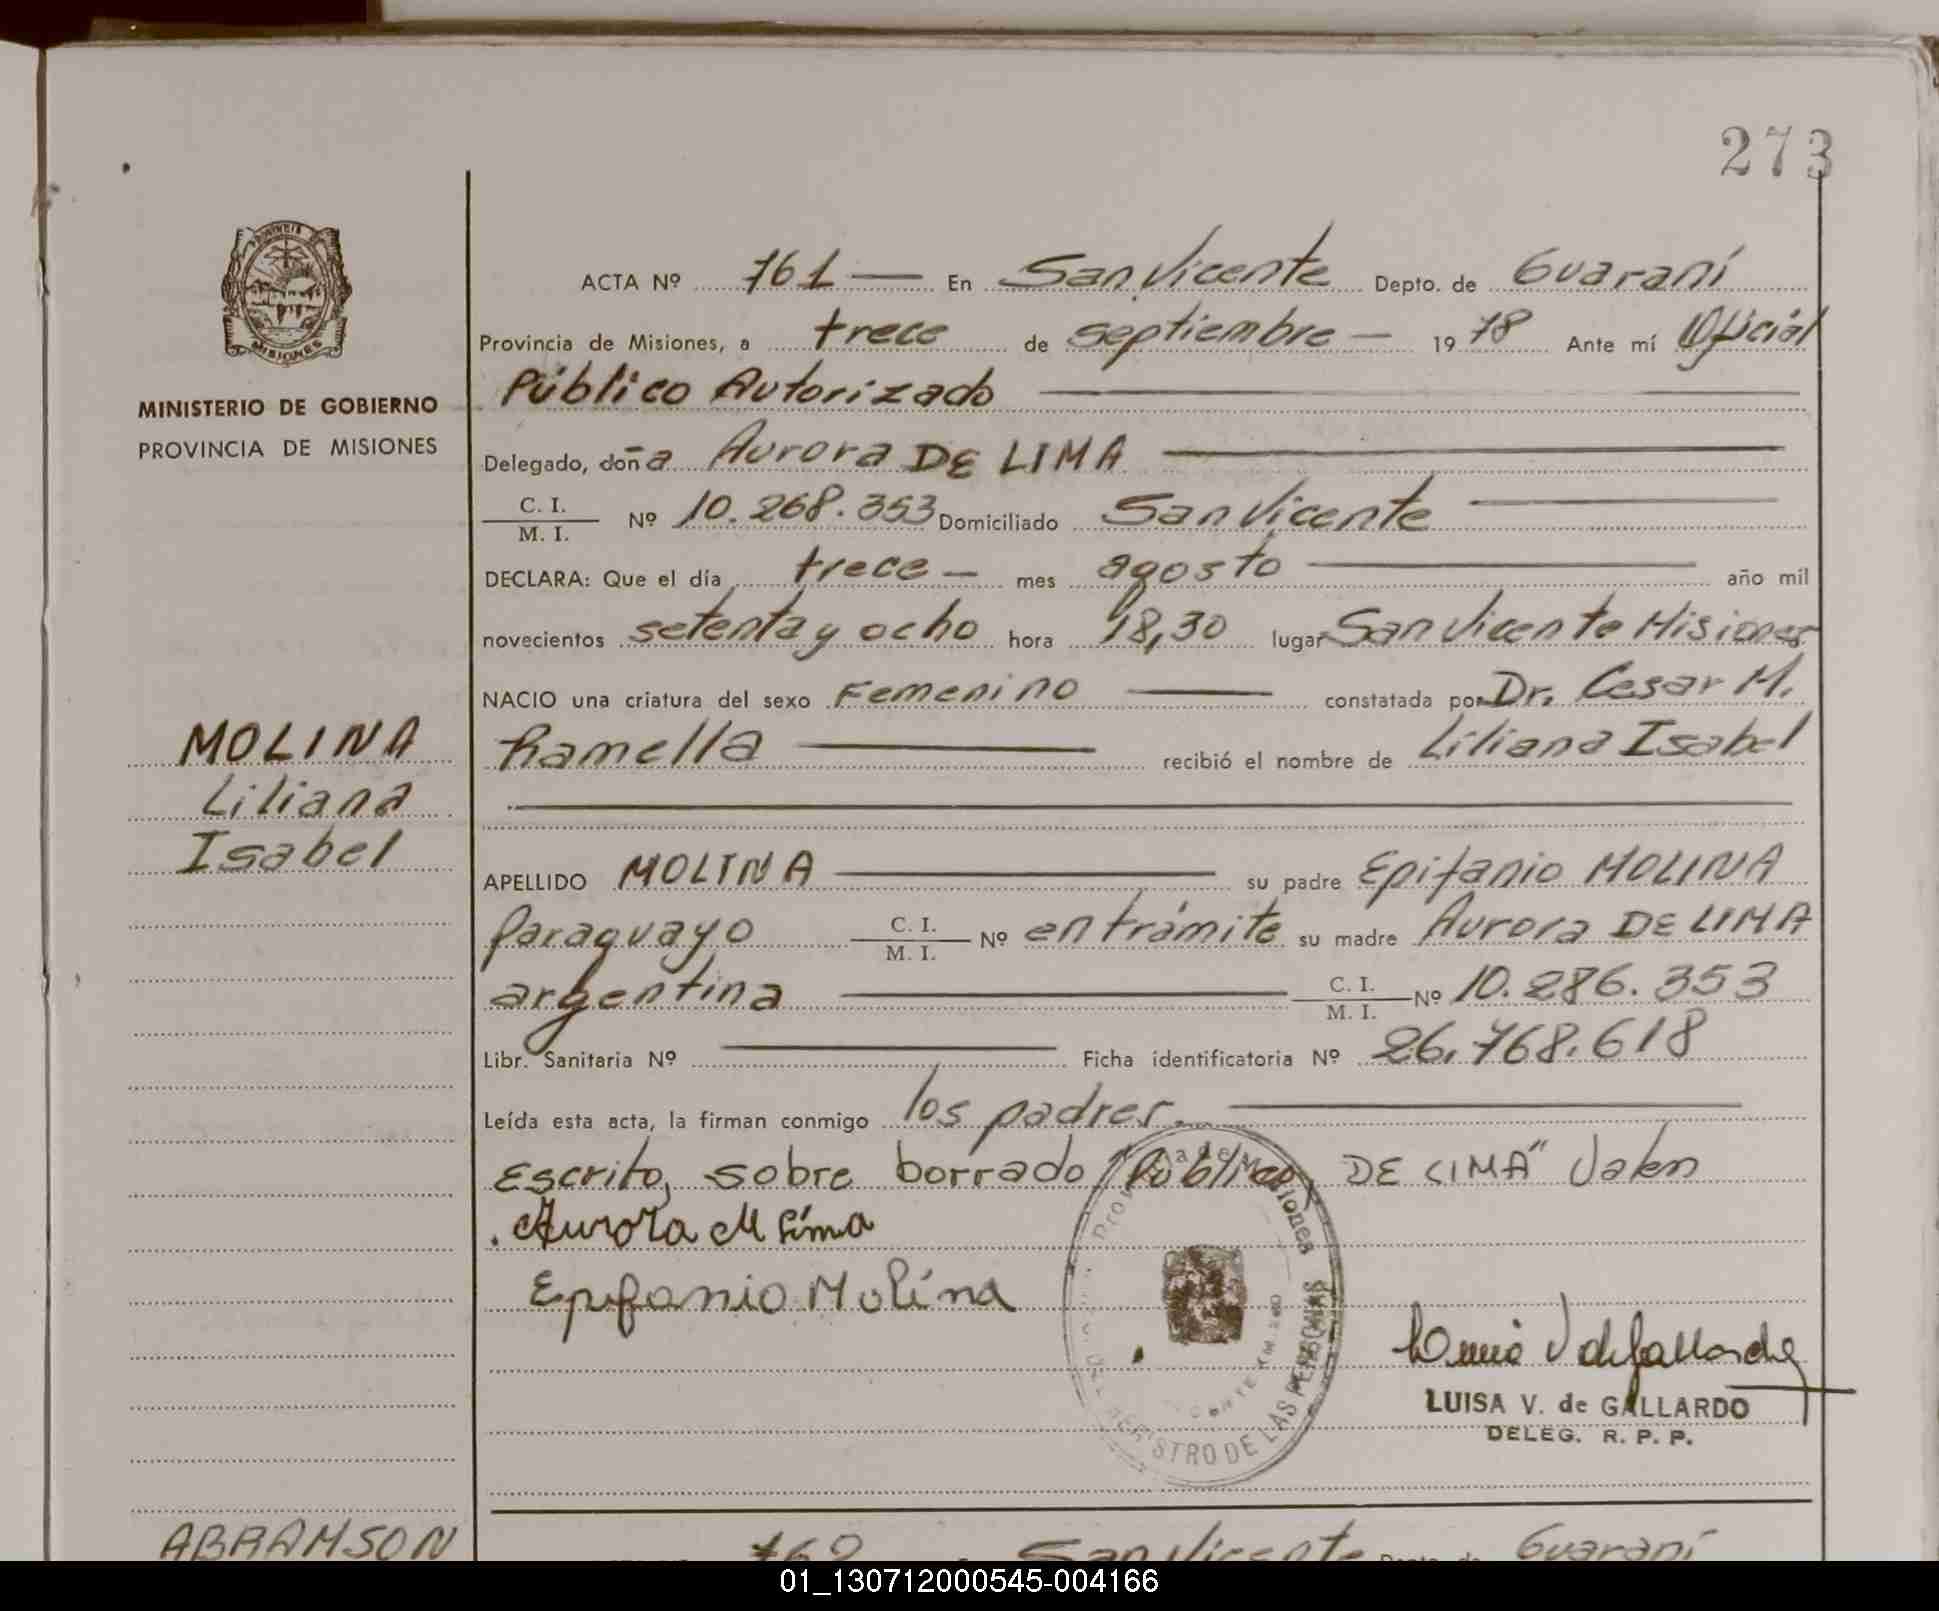 273
ACTA Nº 761 En San Vicente Depto. de Guaraní
Provincia de Misiones, a trece de septiembre 1978 Ante mí Oficial
Público Autorizado
MINISTERIO DE GOBIERNO
PROVINCIA DE MISIONES
Delegado, doña Aurora DE LIMA
C. I.
M. I. Nº 10.268.353 Domiciliado San Vicente
DECLARA: Que el día trece mes agosto año mil
novecientos setenta y ocho hora 18,30 lugar San Vicente Misiones
NACIO una criatura del sexo Femenino constatada por Dr. Cesar M.
Ramella recibió el nombre de Liliana Isabel
MOLINA
Liliana
Isabel
APELLIDO MOLINA su padre Epifanio MOLINA
Paraguayo C. I. M. I. Nº en trámite su madre Aurora DE LIMA
argentina C. I. M. I. Nº 10.286.353
Libr. Sanitaria Nº Ficha identificatoria Nº 26.768.618
Leída esta acta, la firman conmigo los padres.
Escrito, sobre borrado "Público, DE LIMA" Valen
Aurora M Lima
Epifanio Molina
REGISTRO DE LAS PERSONAS
LUISA V. de GALLARDO
DELEG. R. P. P.
ABRAMSON
762 San Vicente Depto. de Guaraní
01_130712000545-004166